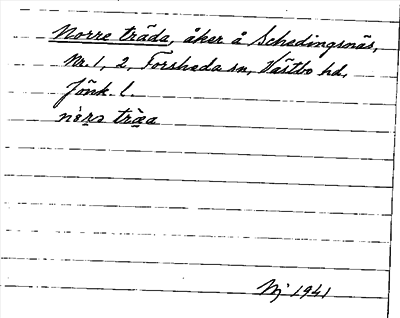 Norre träda, åker å Schedingsnäs,
Nr. 1, 2, Forsheda sn, Västbo hd,
Jönk. l.
1941